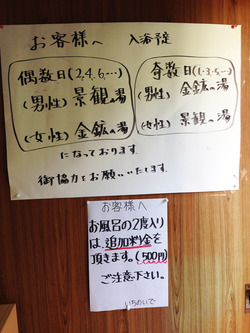 お客様へ 入浴予定
偶数日(2,4,6,…)
(男性) 景観の湯
(女性) 金鉱の湯
奇数日(1・3・5,…)
(男性) 金鉱の湯
(女性) 景観の湯
になっております。
御協力をお願いいたします。
お客様へ
お風呂の2度入り
は、追加料金を
頂きます。(500円)
ご注意下さい。
いちのいで